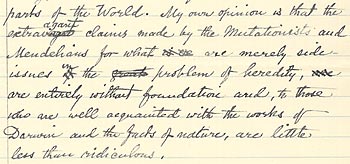 parts of the World. My own opinion is that the
agant
extravagant claims made by the Mutationists and
Mendelians for what is are are merely side
issues in the great problem of heredity,
are entirely without foundation and, to those
who are well acquainted with the works of
Darwin and the facts of nature, are little
less than ridiculous.